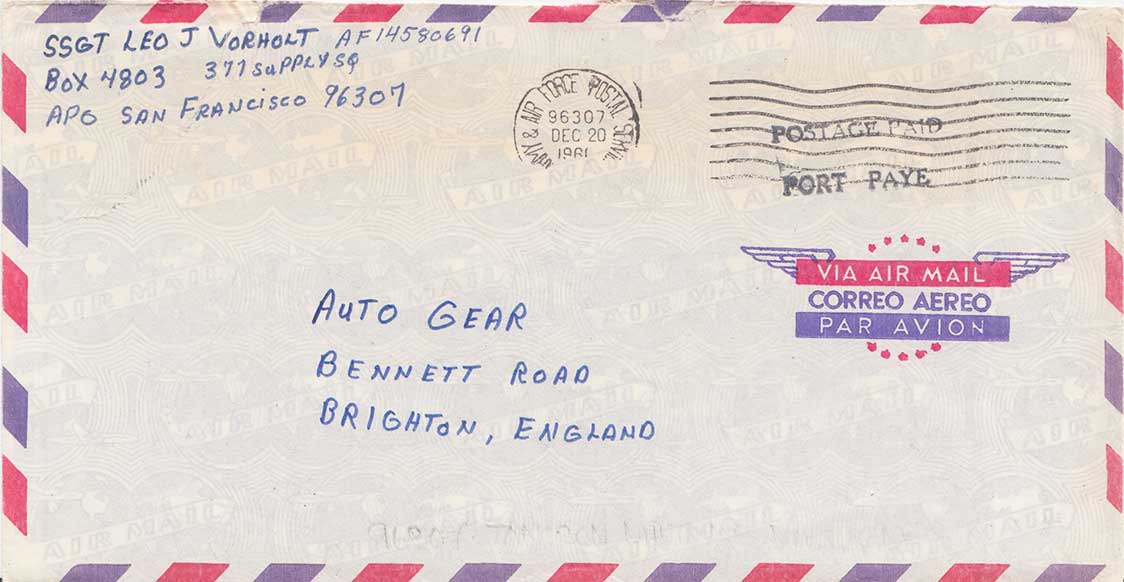 SSGT LEO J VORHOLT AF14580691
BOX 4803 377 SUPPLY SQ
APO SAN FRANCISCO 96307
ARMY & AIR FORCE POSTAL SERVICE
96307
DEC 20
POSTAGE PAID
PORT PAYE
VIA AIR MAIL
CORREO AEREO
PAR AVION
AUTO GEAR
BENNETT ROAD
BRIGHTON, ENGLAND
AIR MAIL